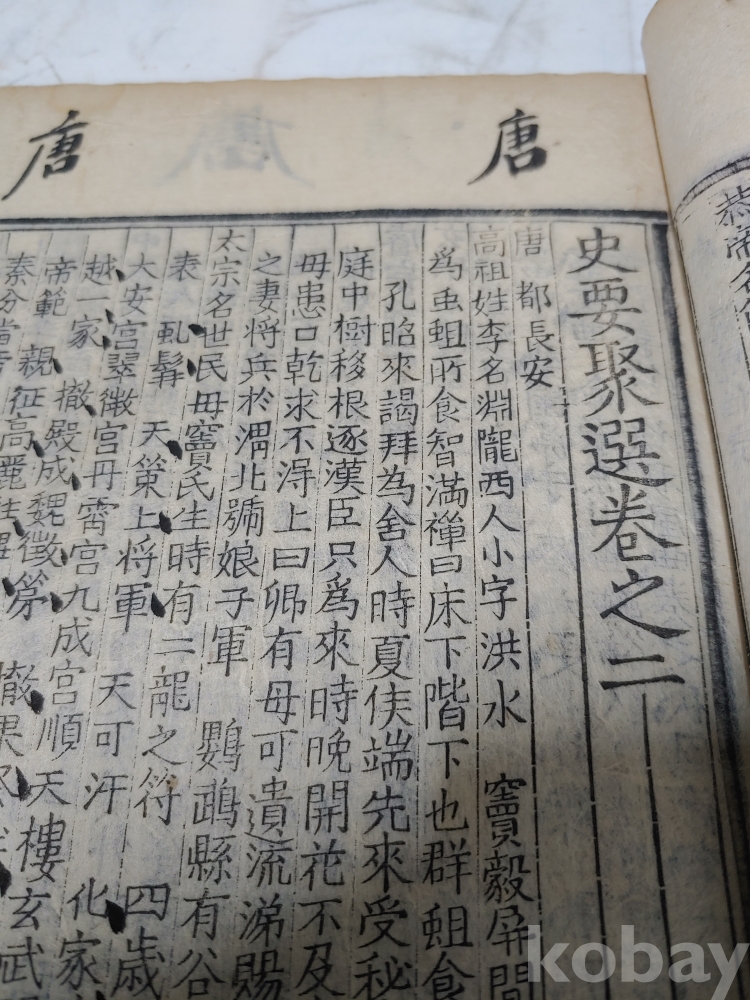 恭帝名
唐
唐
史要聚選卷之二
唐 都長安
高祖姓李名淵隴西人小字洪水 竇毅屏間
爲虫蛆所食智滿禪曰床下階下也群蛆食
孔昭來謁拜为舍人時夏侯端先來受秘
庭中樹移根逐漢臣只爲來時晚開花不及
母患口乾求不淂上曰卿有母可遺流涕賜
之妻將兵於渭北號娘子軍 鸚鵡縣有谷
太宗名世民母竇氏生時有二龍之符
表 虬髯 天策上将軍 天可汗 四歲
大安宮翠微宮丹霄宮九成宮順天樓玄武
越一家 撤殿成魏徵 化家
帝範 親征高麗
秦
kobay